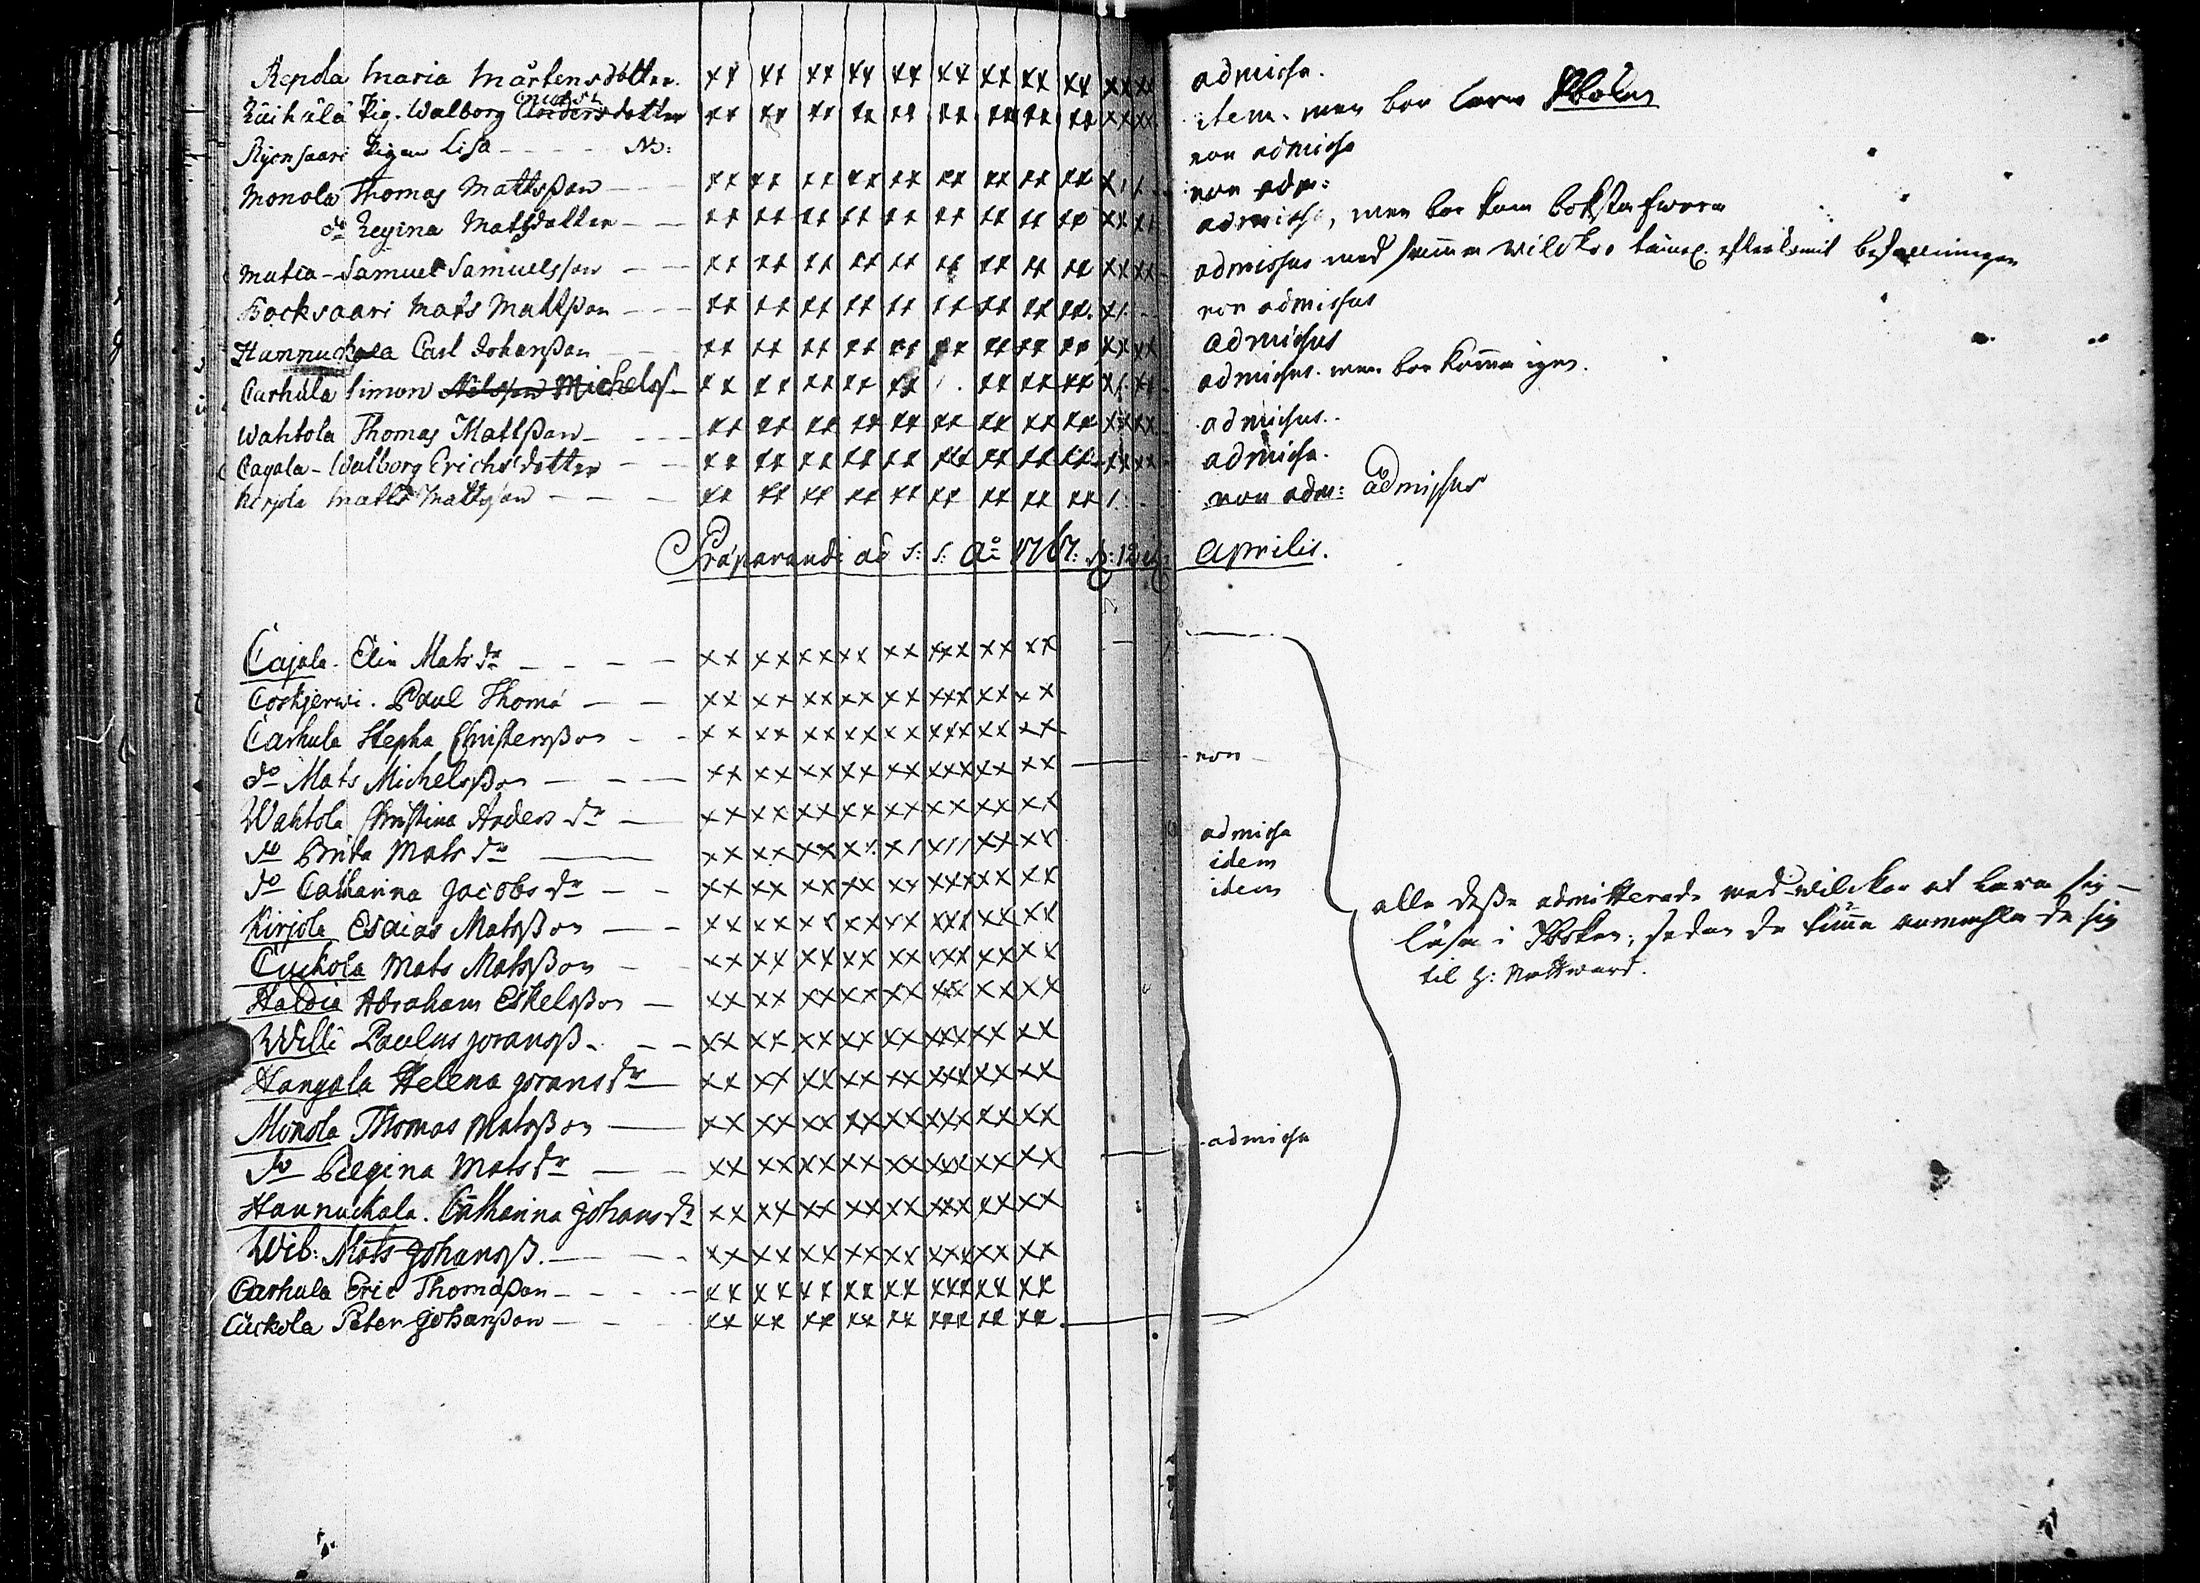 Repola Maria Mårtensdotter. xx xx xx xx xx xx xx xx xx xx xx admissa.
Pig. Walborg Andersdotter xx xx xx xx xx xx xx xx xx xx xx item. men bör lära
Pigan Lisa - - - - NB: non admissa
Monola Thomas Mattsßon - - xx xx xx xx xx xx xx xx xx non adm:
do Regina Matsdotter - - xx xx xx xx xx xx xx xx xx xx xx admissa, men bör
Matia - Samuel Samuelsson - - xx xx xx xx xx xx xx xx xx xx xx admissus med samma wilckor
Bocksaari Mats Mattßon - - - xx xx xx xx xx xx xx xx xx non admissus
Hannukala Carl Johanßon - - xx xx xx xx xx xx xx xx xx xx xx admissus
Carhula Simon Nilsson Michelss - xx xx xx xx xx xx xx xx admissus. men bör komma igen.
Wahtola Thomas Mattßon - - - xx xx xx xx xx xx xx xx xx xx xx admissus.
Cagala - Walborg Erichsdotter - - xx xx xx xx xx xx xx xx xx xx xx admissa.
Kirjola Matts Mattsson - - - xx xx xx xx xx xx xx xx xx non adm: admissus
Præparandi ad S: S. Ao 1767: d: 12 Aprilis.
Cajala. Elin Mats dr - - - - xx xx xx xx xx xxx xx xx
Coskjerwi. Paul Thomæ - - xx xx xx xx xx xxx xx xx
Carhula Stepha Christersßon - - xx xx xx xx xx xxx xx xx
do Mats Michelsßon - - - xx xx xx xx xx xxx xx xx non
Wahtola Christina Anders dr - xx xx xx xx xx xx xx xx admissa
do Brita Mats dr - xx xx xx xx xx idem
do Catharina Jacobs dr - - xx xx xx xx xx xxx xx xx idem
Kirjola Esaias Matsßon - - xx xx xx xx xx xxx xx xx
Cuckola Mats Matsßon - xx xx xx xx xx xxx xx xx
Haldia Abraham Eskelsßon - xx xx xx xx xx xxx xx xx
Willi Paulus Joransß - - - xx xx xx xx xx xxx xx xx
Hangala Helena Jorans dr - xx xx xx xx xx xxx xx xx
Monola Thomas Matsßon - xx xx xx xx xx xxx xx xx
do Regina Mats dr - - xx xx xx xx xx xxx xx xx admissa
Hannuckala. Catharina Johans dr xx xx xx xx xx xxx xx xx
Wib: Mats Johansß. - - - xx xx xx xx xx xxx xx xx
Carhula Eric Thomæßon - - - - xx xx xx xx xx xxx xx xx
Cuckola Peter Johanßon - - xx xx xx xx xx xxx xx xx
alle deße admitterade med wilckor at lära sig
läsa i Boken, sedan de anmähla de sig
til H: Nattward.